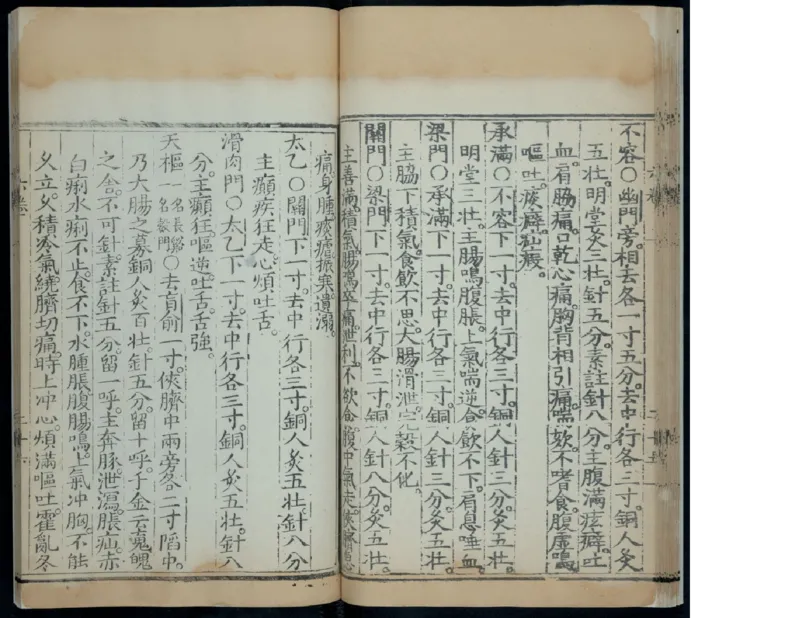 不容○幽門旁相去各一寸五分。去中行各三寸。銅人灸
五壯。明堂灸三壯。針五分。素註針八分。主腹滿痃癖。吐
血。肩脇痛。口乾心痛。胸背相引痛。喘欬。不嗜食。腹虛鳴。
嘔吐。痰癖疝瘕。
承滿○不容下一寸。去中行各三寸。銅人針三分。灸五壯。
明堂三壯。主腸鳴腹脹。上氣喘逆。食飲不下。肩息唾血。
梁門○承滿下一寸。去中行各三寸。銅人針三分。灸五壯。
主脇下積氣。食飲不思。大腸滑泄。完穀不化。
關門○梁門下一寸。去中行各三寸。銅人針八分。灸五壯。
主善滿積氣。腸鳴卒痛泄利。不欲食。腹中氣走。俠臍急
痛。身腫。痰瘧振寒。遺溺。
太乙○關門下一寸。去中行各三寸。銅人灸五壯。針八分
主癲疾狂走。心煩吐舌。
滑肉門○太乙下一寸。去中行各三寸。銅人灸五壯。針八
分。主癲狂。嘔逆。吐舌。舌強。
天樞一名長谿一名穀門○去肓俞一寸。俠臍中兩旁各二寸陷中。
乃大腸之募。銅人灸百壯。針五分。留十呼。千金云。魂魄
之舍。不可針。素註針五分。留一呼。主奔豚。泄瀉。脹疝。赤
白痢水痢不止。食不下。水腫脹腹腸鳴。上氣冲胸。不能
久立。久積冷氣。繞臍切痛。時上冲心。煩滿嘔吐。霍亂。冬
六卷
六卷